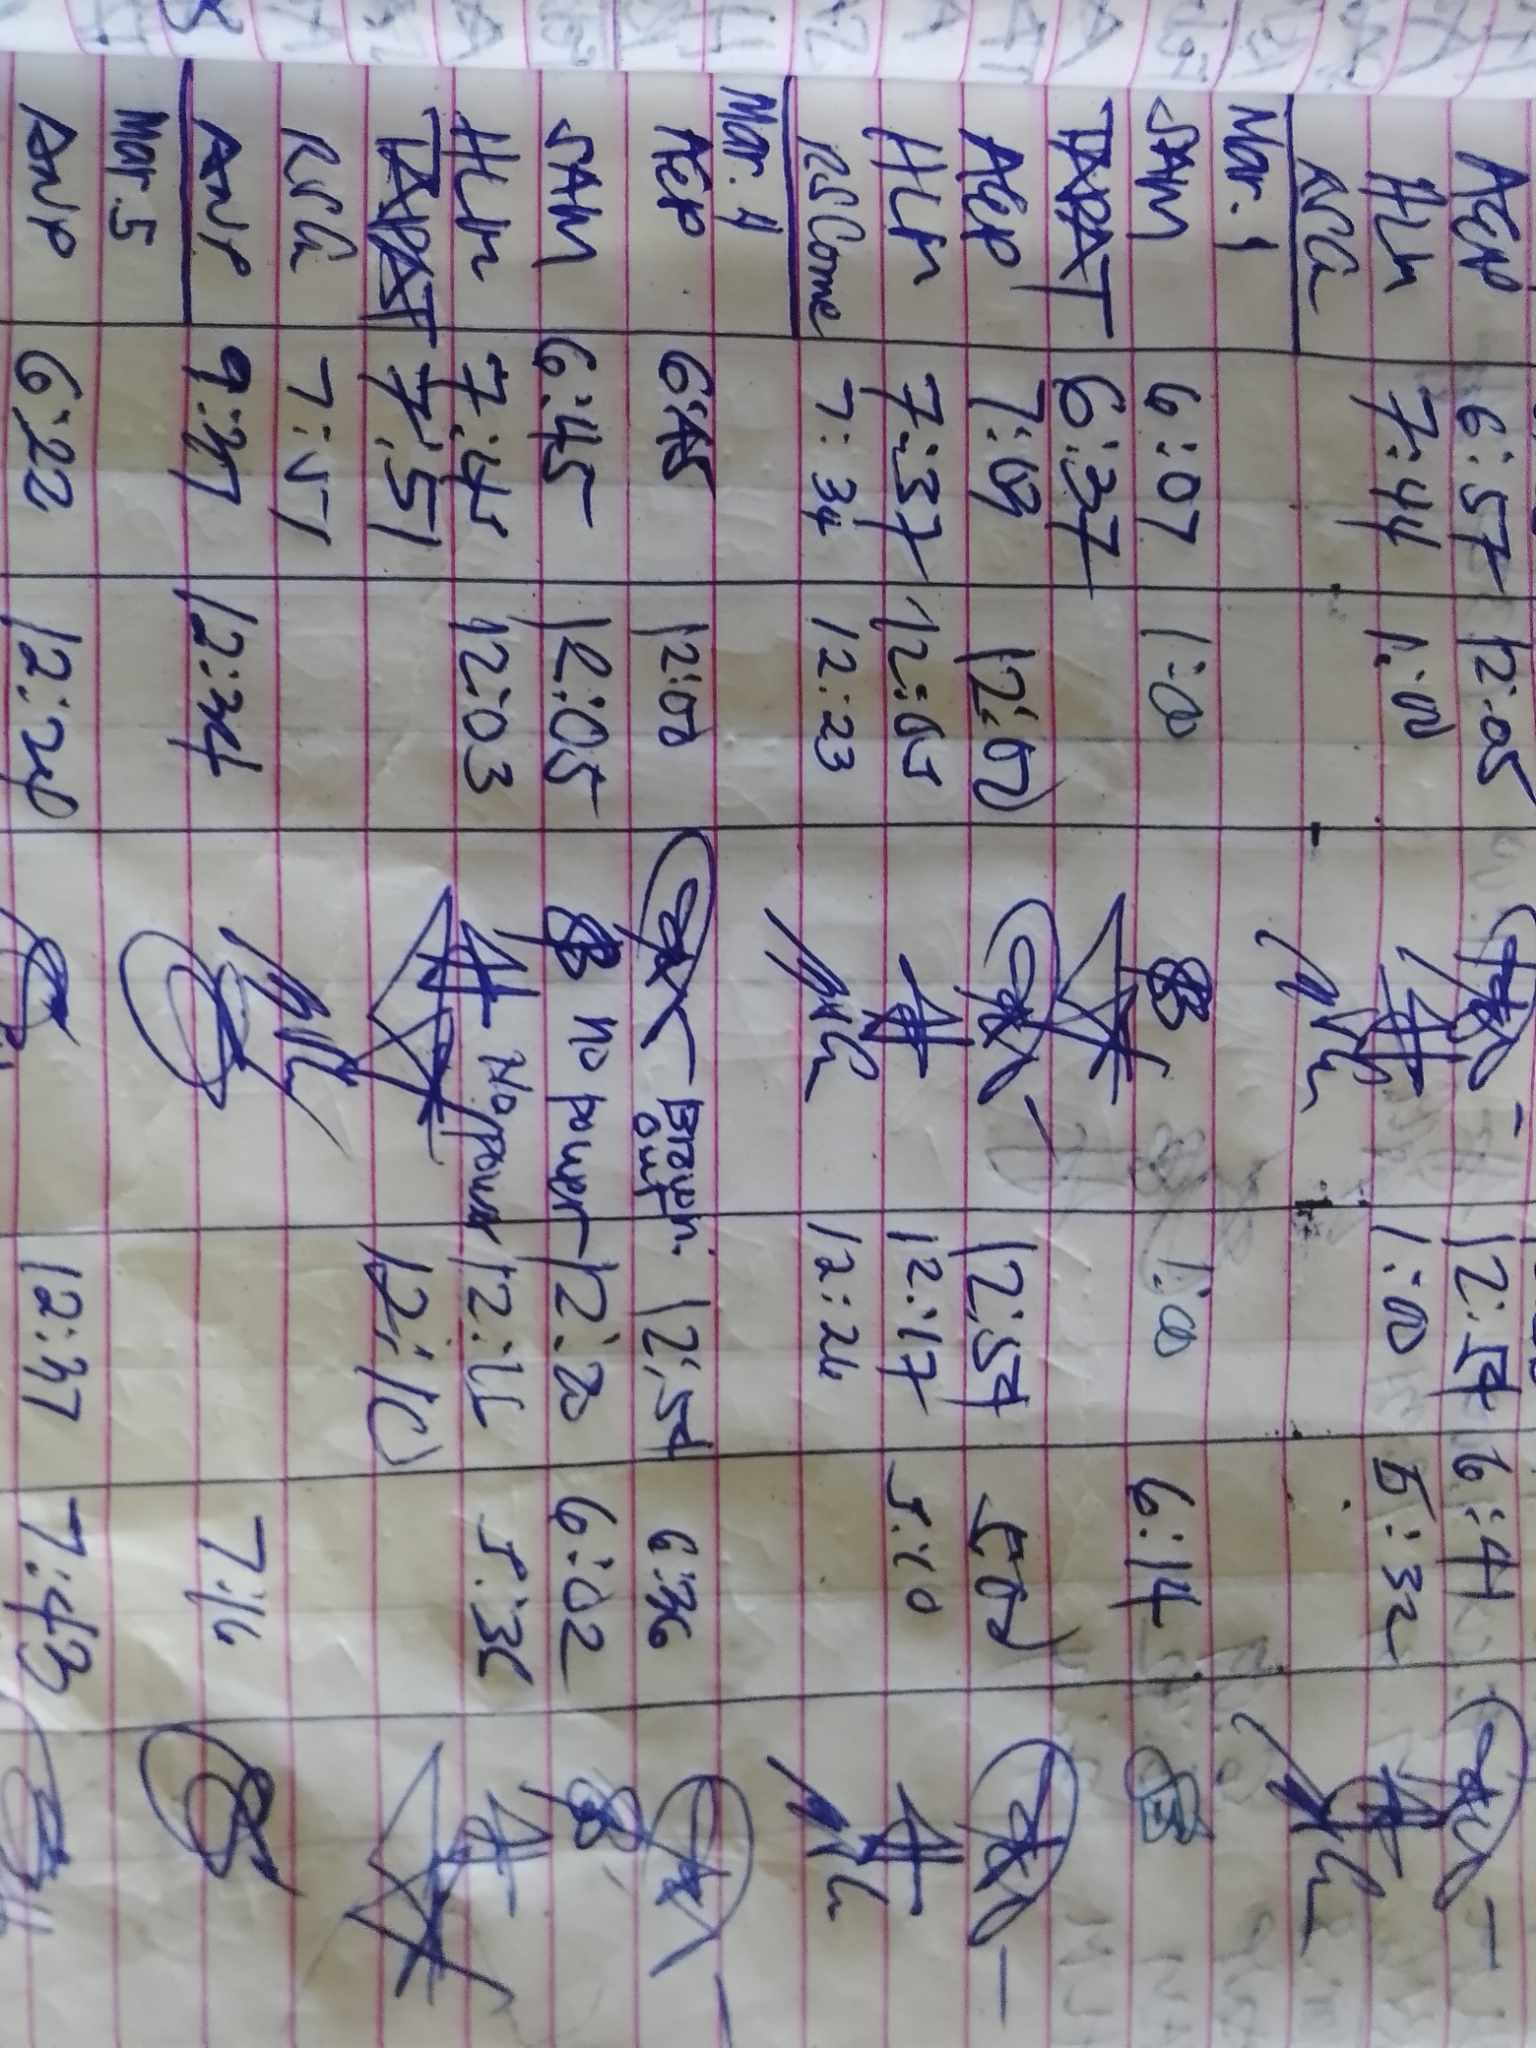 AEP 6:57 12:05 12:57 6:41
HLM 7:44 1:00 1:00 5:32
RSG
Mar. 1
SAM 6:07 1:00 1:00 6:14
TAPAT 6:37
AEP 7:09 12:00 12:57 5:00
HLM 7:37 12:05 12:17 5:10
RSCome 7:34 12:23 12:24
Mar. 4
AEP 6:45 12:00 Brown out. 12:57 6:36
SAM 6:45 12:05 no power 12:20 6:02
HLM 7:45 12:03 No power 5:36
TAPAT 7:51 12:10
RSG 7:51
ANP 9:27 12:34 7:16
Mar. 5
ANP 6:22 12:37 7:43